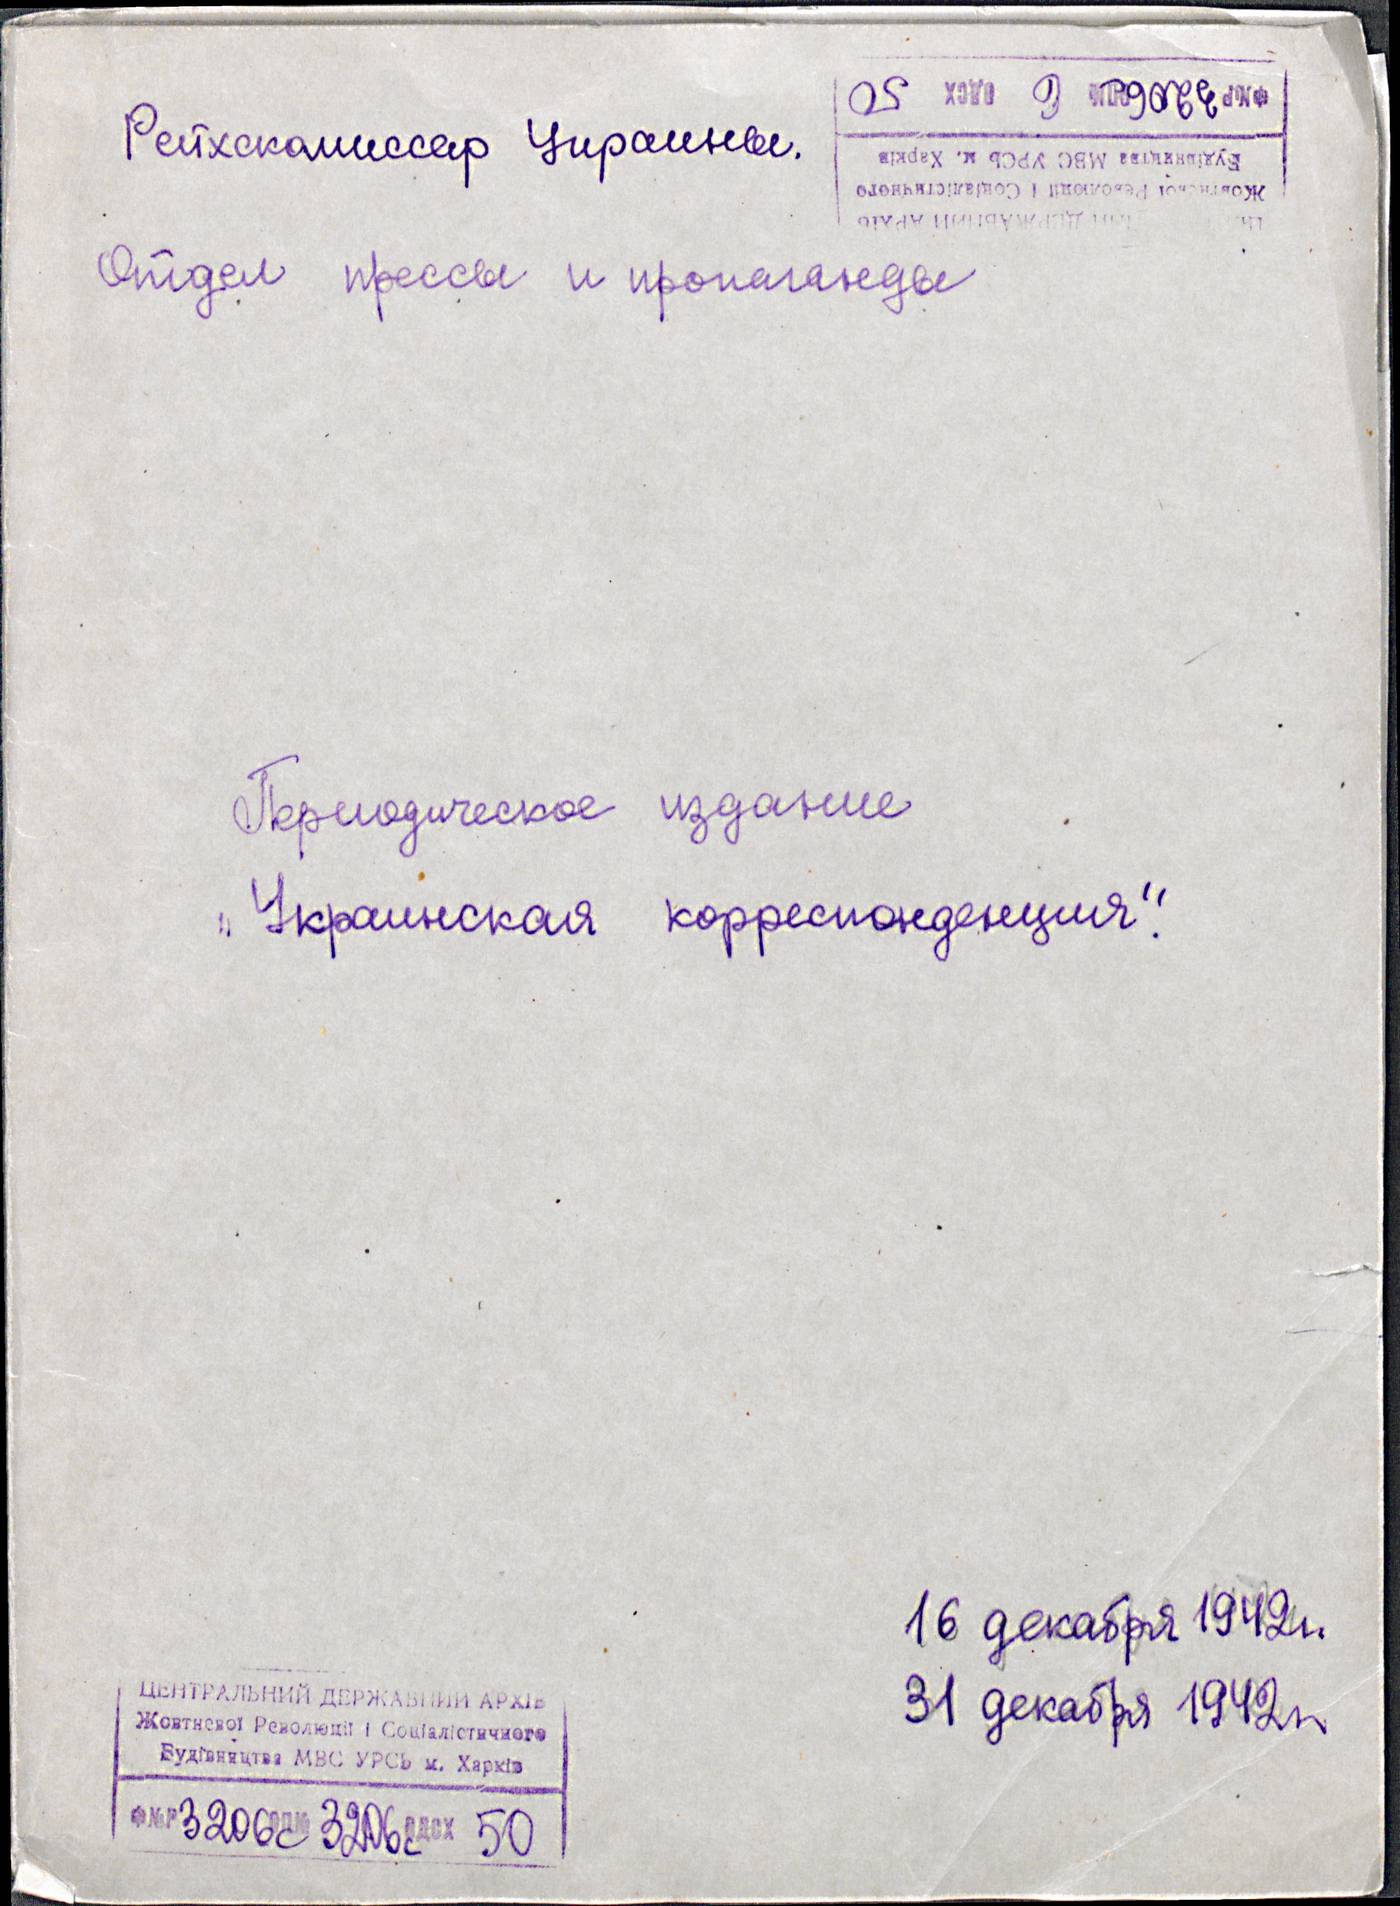 Рейхскомиссар Украины.
Отдел прессы и пропаганды
ФNР 3206с ОПN 6 ОДСХ 50
ДЕРЖАВНИЙ АРХІВ
Жовтневої Революції і Соціалістичного
Будівництва МВС УРСЬ м. Харків
Периодическое издание
„Украинская корреспонденция“.
16 декабря 1942г.
31 декабря 1942г.
ЦЕНТРАЛЬНИЙ ДЕРЖАВНИЙ АРХІВ
Жовтневої Революції і Соціалістичного
Будівництва МВС УРСЬ м. Харків
Ф№Р 3206с ОП№ 3206с ОДСХ 50